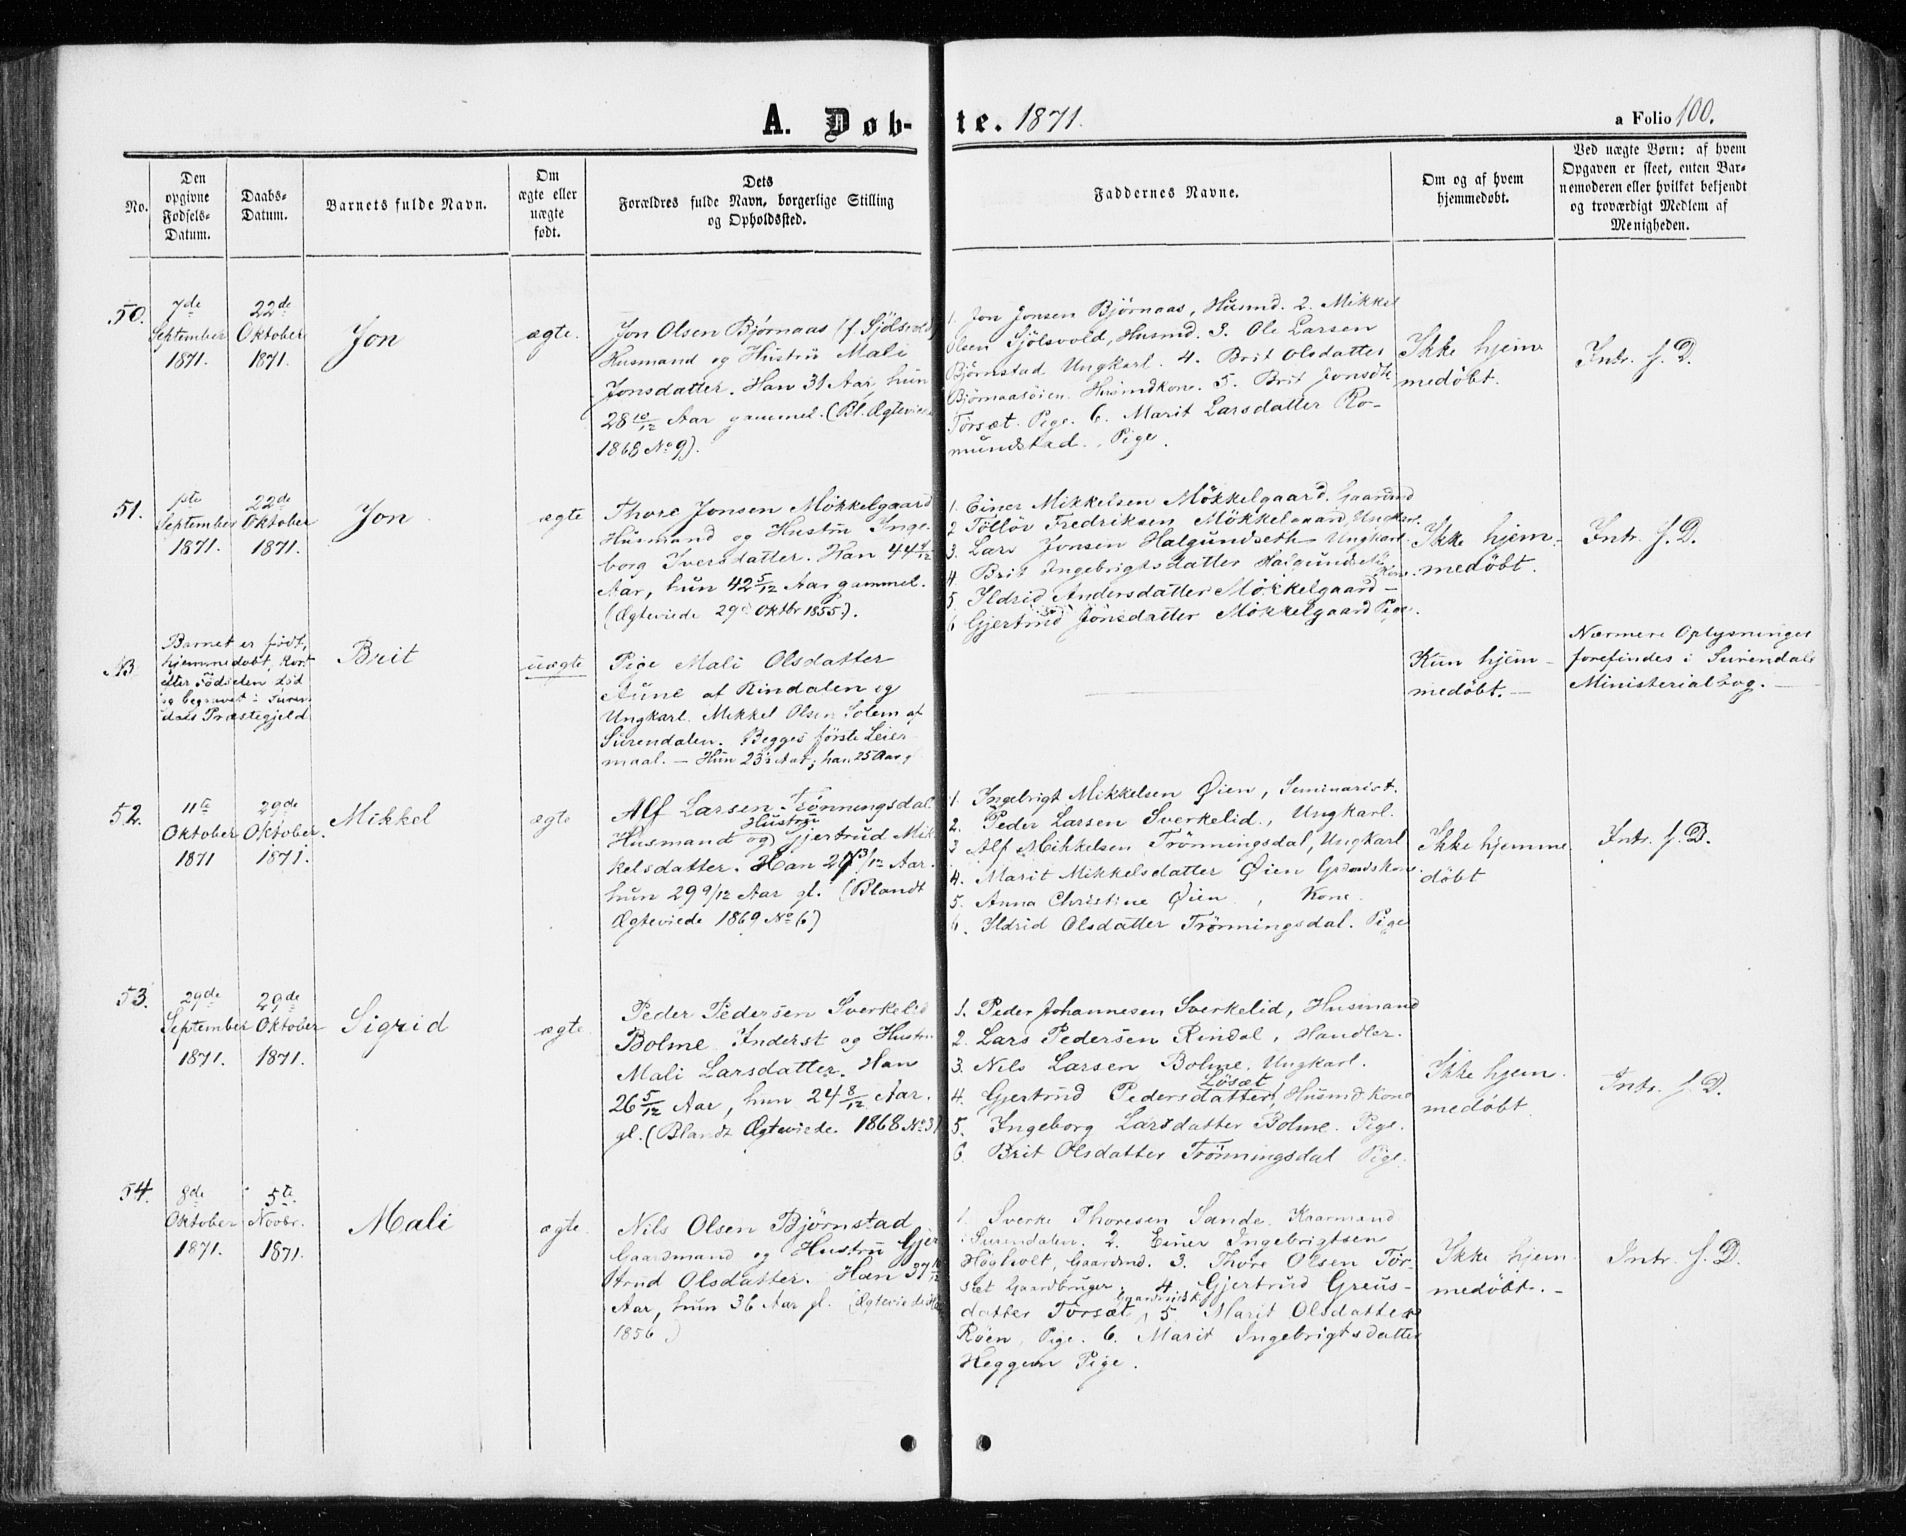 A. Dob-te. 1871.
a Folio 100.
No.
Den opgivne Fødsels-Datum.
Daabs-Datum.
Barnets fulde Navn.
Om ægte eller uægte født.
Dets Forældres fulde Navn, borgerlige Stilling og Opholdssted.
Faddernes Navne.
Om og af hvem hjemmedøbt.
Ved uægte Børn: af hvem Opgaven er skeet, enten Barnemoderen eller hvilket bekjendt og troværdigt Medlem af Menigheden.
50.
7de
September
1871.
22de
Oktober
1871.
Jon
ægte.
Jon Olsen Bjørnaas (f. Sjölsvold)
Husmand og Hustrü Mali
Jonsdatter. Han 31 Aar, hun
28 10/12 Aar gammel. (Bl. Ægteviede
1868 No 9).
1. Jon Jonsen Bjørnaas, Husmd. 2. Mikkel
Olsen Sjölsvold, Husmd. 3. Ole Larsen
Bjørnstad Ungkarl. 4. Brit Olsdatter
Bjørnaasöien. Husmdkone. 5. Brit Jonsdtr
Torsæt. Pige. 6. Marit Larsdatter Ro-
mundstad. Pige.
Ikke hjem
medöbt.
Intr. f. D.
51.
1ste
September
1871.
22de
Oktober
1871.
Jon
ægte
Thore Jonsen Mökkelgaard
Husmand og Hustru Inge-
borg Iversdatter. Han 44 4/12
Aar, hun 42 5/12 Aar gammel.
(Ægteviede 29de Oktbr 1855).
1. Einer Mikkelsen Mökkelgaard. Gaardmd
2 Tölløv Fredriksen Mökkelgaard Ungkarl.
3. Lars Jonsen Halgundseth Ungkarl
4. Brit Ingebrigtsdatter Halgundseth Kone.
5. Ildrid Andersdatter Mökkelgaard -
6 Gjertrud Jonsdatter Mökkelgaard Pige.
Ikke hjem-
medöbt.
Intr. f. D.
NB
Barnet er født,
hjemmedøbt, kort
efter Födselen död
og begravet i Suren-
dals Præstegjeld
Brit
uægte
Pige Mali Olsdatter
Aune af Rindalen og
Ungkarl. Mikkel Olsen Solem af
Surendalen. Begges förste Leier
maal. - Hun 23 Aar; han 25 Aar g
Kun hjem-
medöbt. -
Nærmere Oplysninger
forefindes i Surendals
Ministerialbog. -
52.
11te
Oktober
1871
29de
Oktober.
1871.
Mikkel
ægte
Alf Larsen Trönningsdal
Husmand og Hustru Gjertrud Mik
kelsdatter. Han 27 3/12 Aar.
hun 29 9/12 Aar gl. (Blandt
Ægteviede 1869 No 6)
1. Ingebrigt Mikkelsen Øien, Seminarist.
2. Peder Larsen Sverkelid., Ungkarl.
3 Alf Mikkelsen Trönningsdal, Ungkarl
4. Marit Mikkelsdatter Øien Grdmdskone.
5. Anna Christine Øien, Kone.
6. Ildrid Olsdatter Trönningsdal. Pige
Ikke hjemme
döbt
Intr. f. D.
53.
29de
September
1871.
29de
Oktober
1871.
Sigrid
ægte.
Peder Pedersen Sverkelid
Bolme Inderst og Hustru
Mali Larsdatter. Han
26 5/12 Aar, hun 24 8/12 Aar.
gl. (Blandt Ægteviede. 1868 No 3)
1. Peder Johannesen Sverkelid, Husmand
2. Lars Pedersen Rindal, Handler.
3. Nils Larsen Bolme. Ungkarl.
4. Gjertrud Pedersdatter Løsæt, Husmd. Kone
5. Ingeborg Larsdatter Bolme. Pige.
6. Brit Olsdatter Trönningsdal Pige.
Ikke hjem
medöbt
Intr. f. D.
54.
8de
Oktober
1871.
5te
Novbr.
1871.
Mali
ægte
Nils Olsen Bjørnstad
Gaardmand og Hustru Gjer
trud Olsdatter. Han 37 10/12
Aar, hun 36 Aar gl. (Ægteviede
1856)
1. Sverke Thoresen Sande. Kaarmand
i Surendalen. 2. Einer Ingebrigtsen
Høgholt, Gaardmd. 3. Thore Olsen Tor-
sæt Gaardbruger. 4 Gjertrud Greus-
datter Torsæt, 5. Marit Olsdatter
Röen, Pige. 6. Marit Ingebrigtsdatter
Heggem Pige.
Ikke hjem
medöbt. -
Intr. f. D.